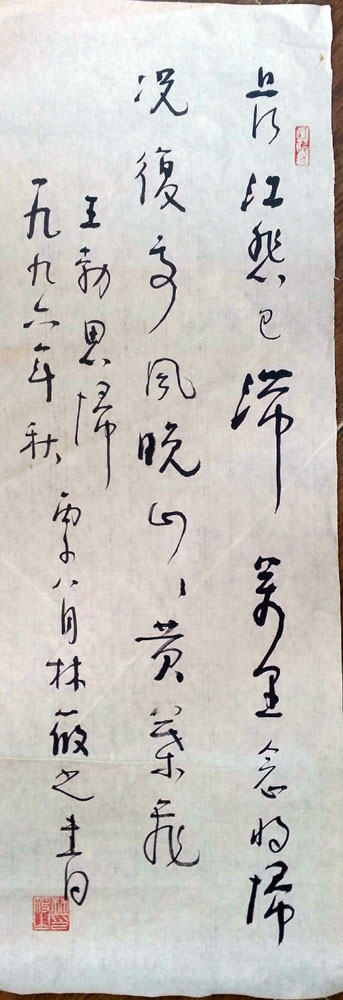 長江悲已滯萬里念將歸
況復高風晚山〻黃葉飛
王勃思歸
一九九六年秋丙子八月林筱之書